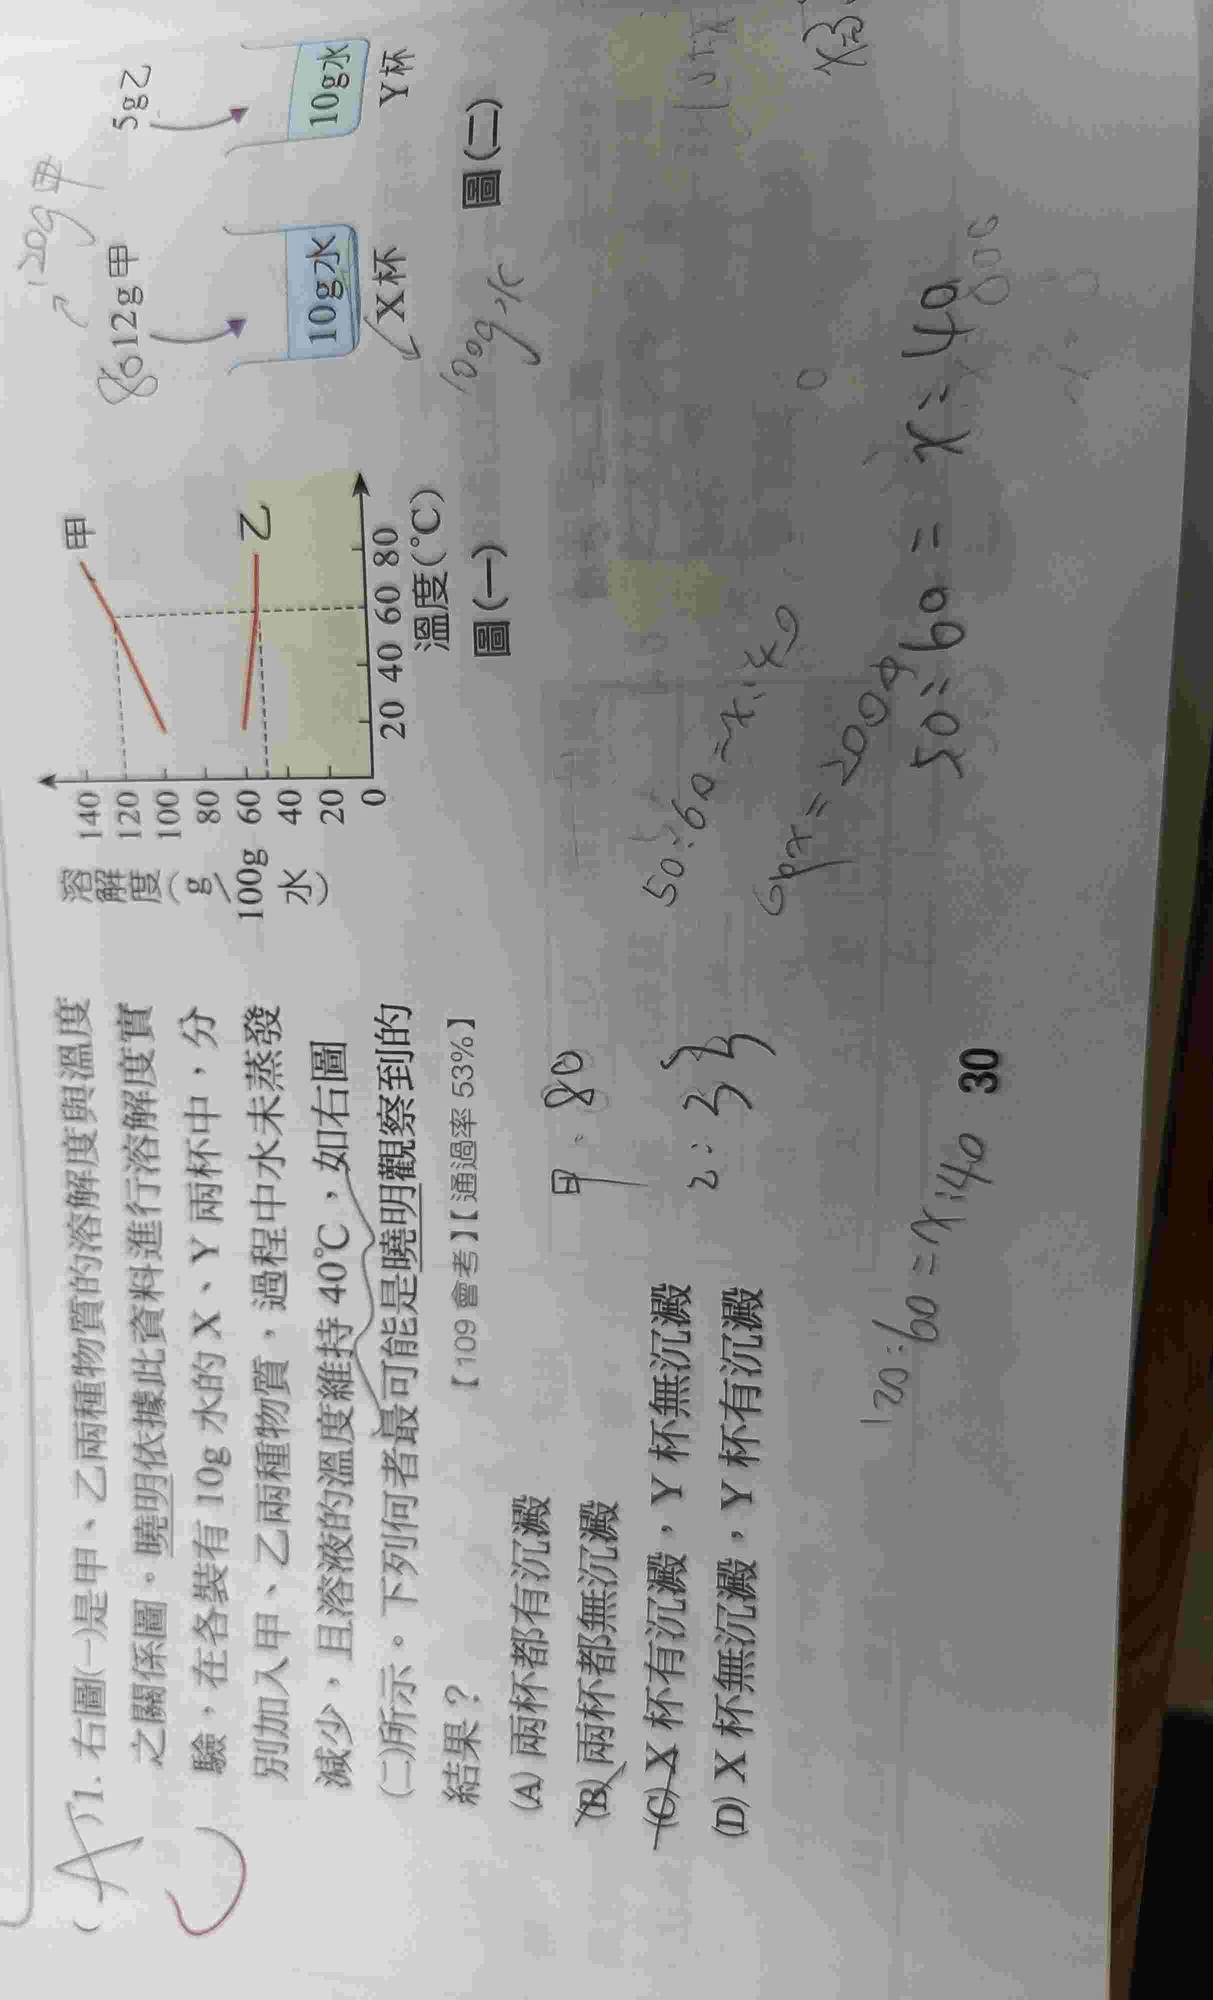 (A)1. 右圖(一)是甲、乙兩種物質的溶解度與溫度
之關係圖。曉明依據此資料進行溶解度實
驗,在各裝有 10g 水的 X、Y 兩杯中,分
別加入甲、乙兩種物質,過程中水未蒸發
減少,且溶液的溫度維持 40℃,如右圖
(二)所示。下列何者最可能是曉明觀察到的
結果?
【109 會考】【通過率 53%】
(A) 兩杯都有沉澱
(B) 兩杯都無沉澱
(C) X 杯有沉澱,Y 杯無沉澱
(D) X 杯無沉澱,Y 杯有沉澱
C
溶
解
度
(g/
100g
水)
140
120
100
80
60
40
20
0
甲
乙
20 40 60 80
溫度(℃)
圖(一)
120g甲
80
12g甲
5g乙
10g水
10g水
X杯
Y杯
100g水
圖(二)
甲:80
50:60=x:40
50:60=x:40
120:60=x:40
30